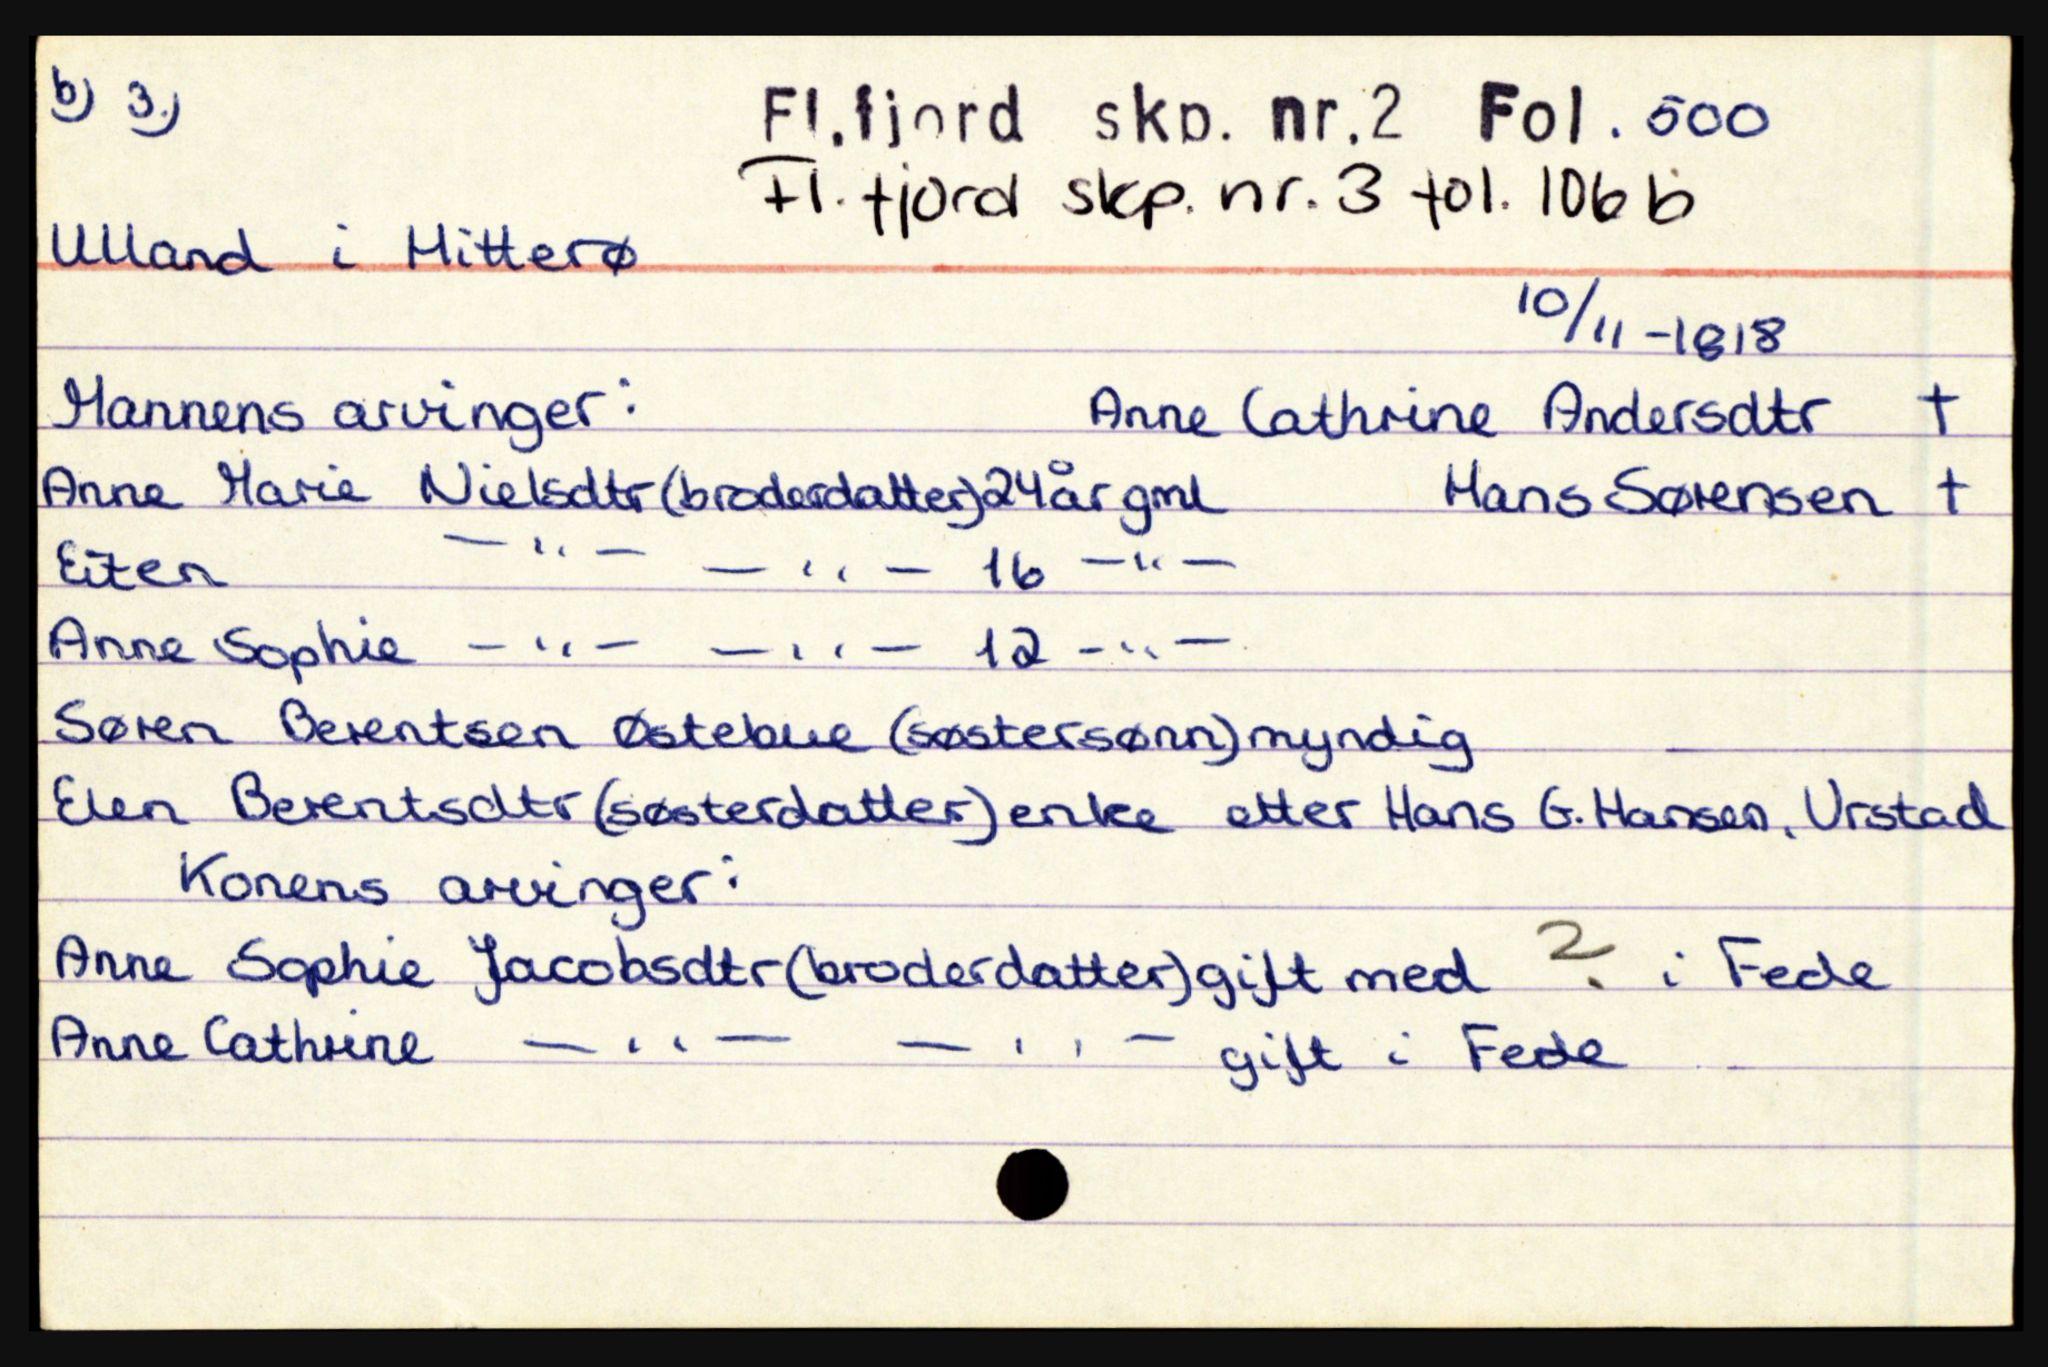 b) 3.)
Fl.fjord skp. nr.2 Fol. 500
Fl. fjord skp. nr. 3 fol. 106 b
Ulland i Hitterø
10/11 -1818
Mannens arvinger: Anne Cathrine Andersdtr †
Anne Marie Nielsdtr (broderdatter) 24 år gml Hans Sørensen †
Eiten —"— —"— 16 —"—
Anne Sophie —"— —"— 12 —"—
Søren Berentsen Østebue (søstersønn) myndig
Elen Berentsdtr (søsterdatter) enke etter Hans G. Hansen, Urstad
Konens arvinger:
Anne Sophie Jacobsdtr (broderdatter) gift med ? i Fede
Anne Cathrine —"— —"— gift i Fede